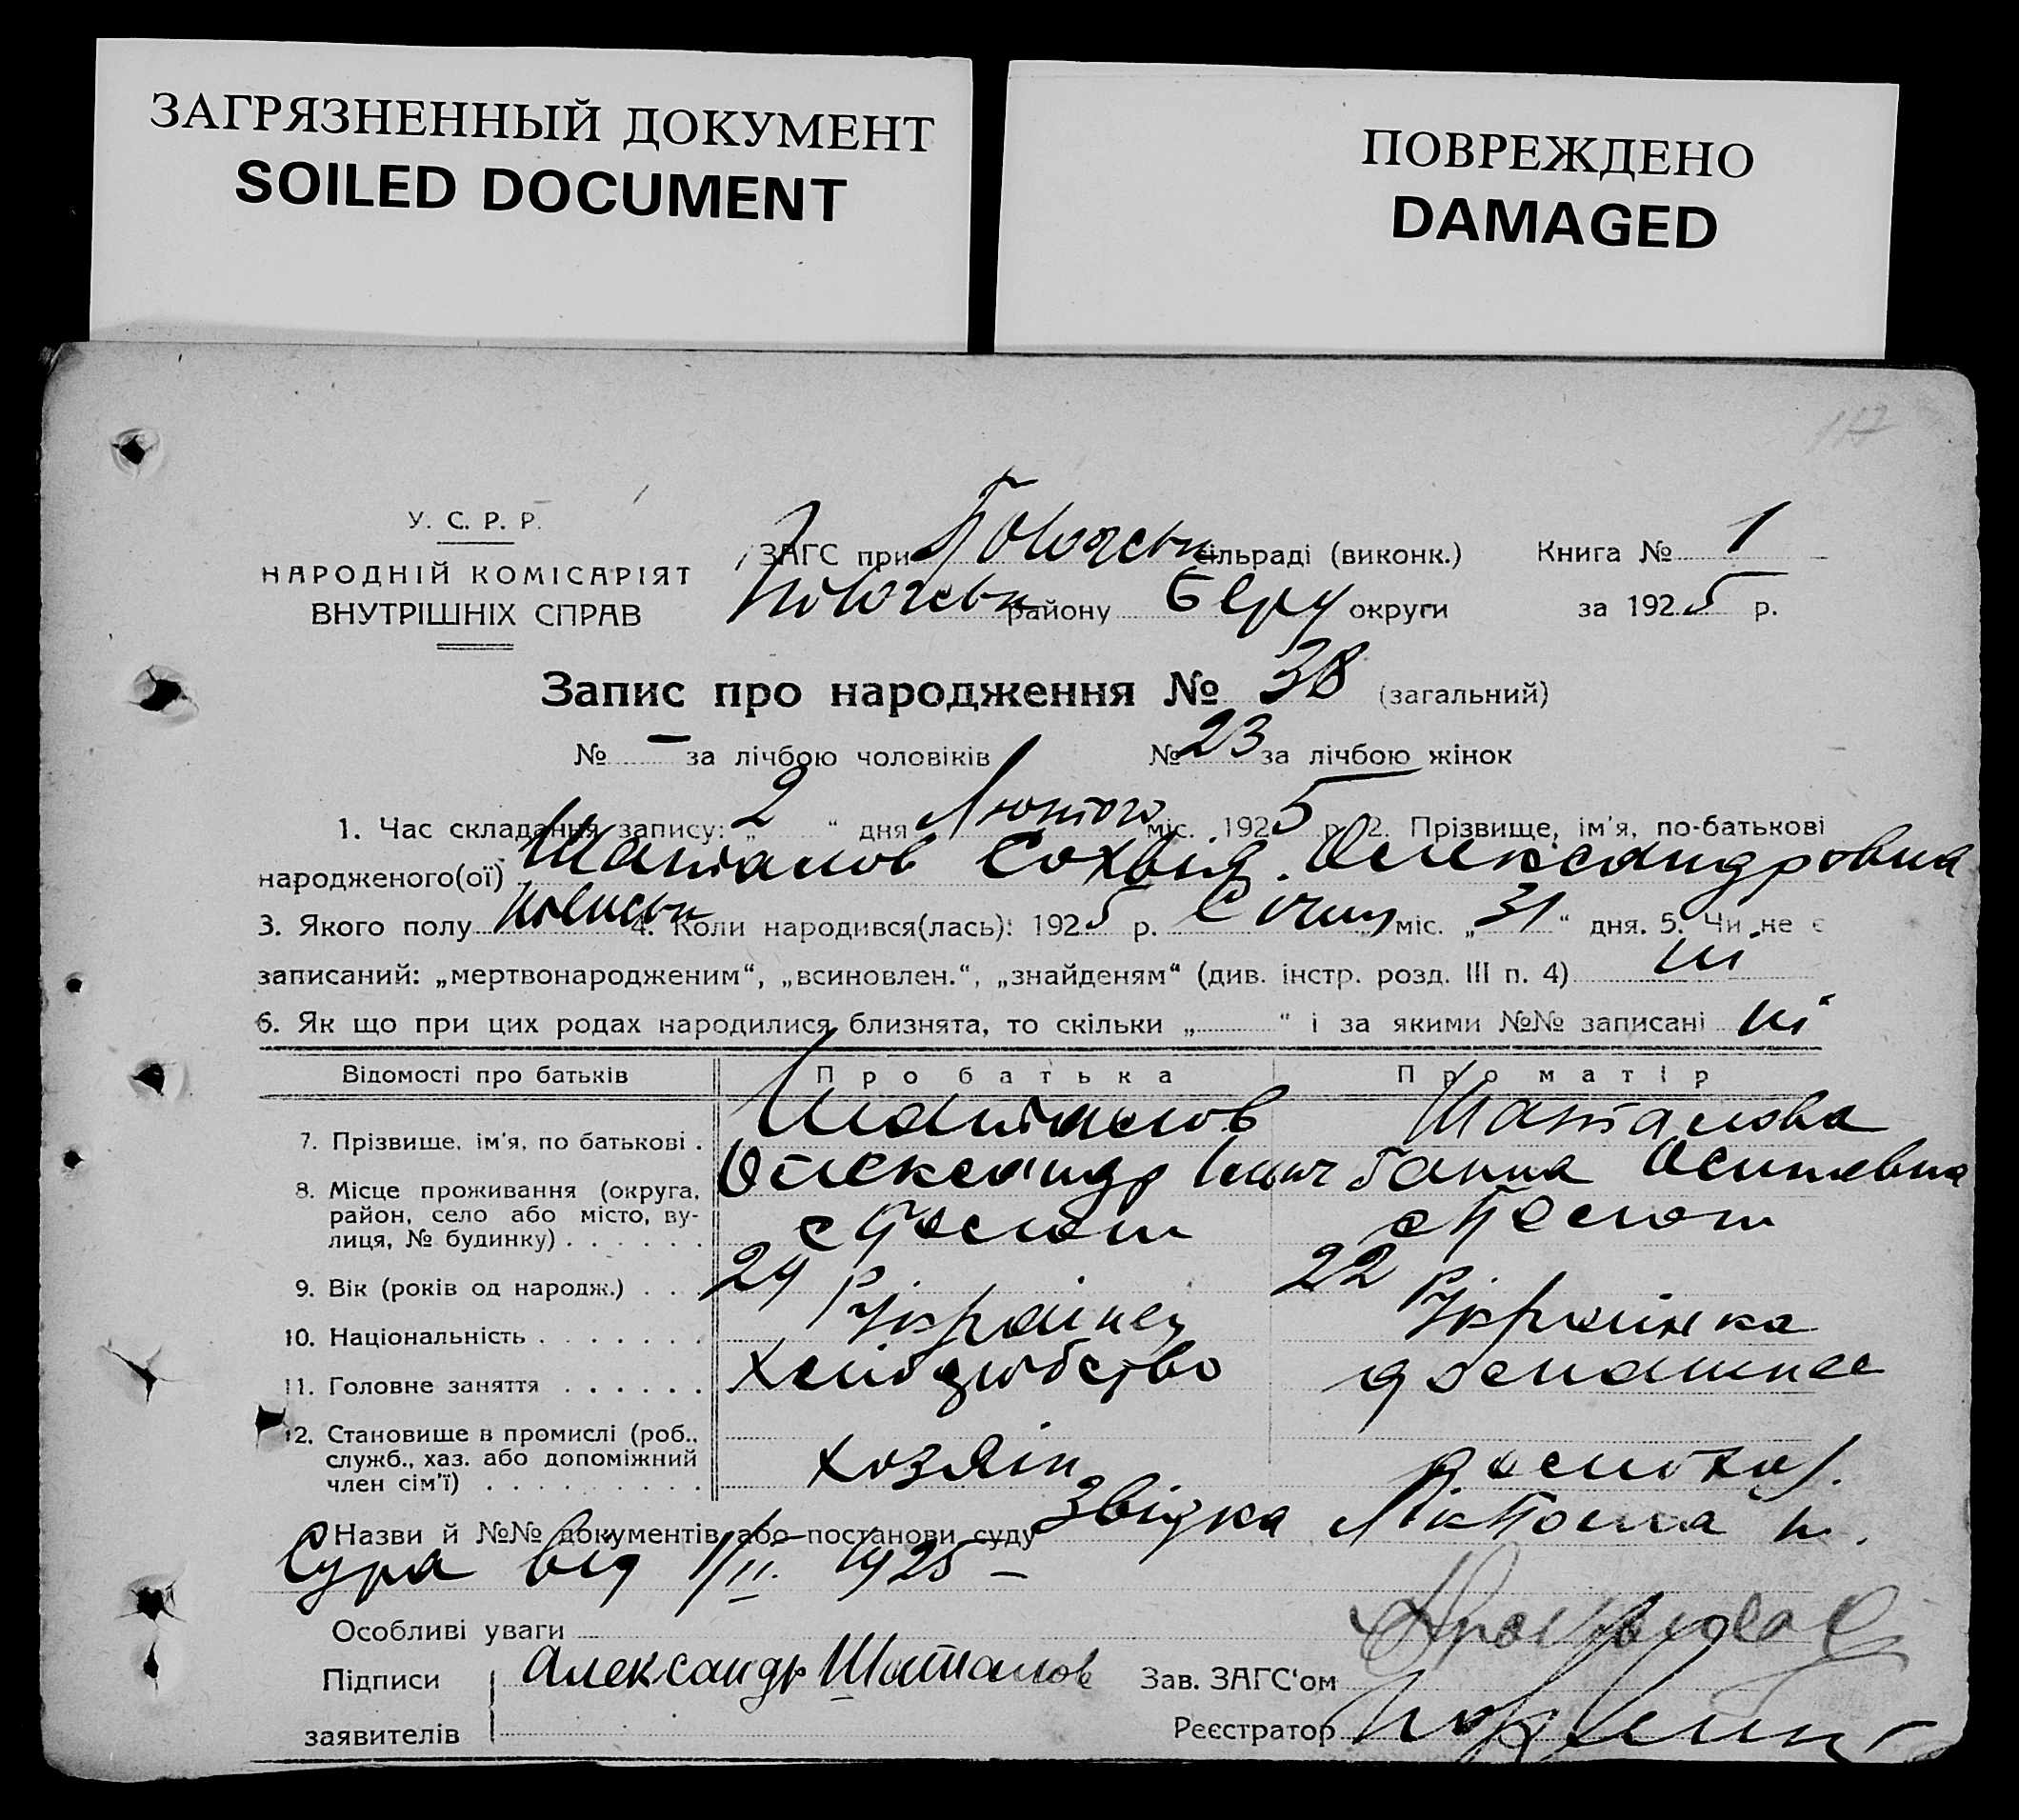 ЗАГРЯЗНЕННЫЙ ДОКУМЕНТ
SOILED DOCUMENT
ПОВРЕЖДЕНО
DAMAGED
У. С. Р. Р.
НАРОДНІЙ КОМІСАРІЯТ
ВНУТРІШНІХ СПРАВ
ЗАГС при сільраді (виконк.) Книга № 1
району округи за 1925 р.
Запис про народження № 38 (загальний)
№ – за лічбою чоловіків № 23 за лічбою жінок
1. Час складання запису: „ 2 “ дня Лютого міс. 1925 р. 2. Прізвище, ім'я, по-батькові
народженого(ої) Шаталов Сохвія Олександровна
3. Якого полу 4. Коли народився(лась): 1925 р. Січня міс. „ 31 “ дня. 5. Чи не є
записаний: „мертвонародженим“, „всиновлен.“, „знайденям“ (див. інстр. розд. III п. 4) ні
6. Як що при цих родах народилися близнята, то скільки „ “ і за якими №№ записані ні
Відомості про батьків Про батька Про матір
7. Прізвище, ім'я, по батькові . Шаталов Шаталова
Олександр Ганна Осиповна
8. Місце проживання (округа,
район, село або місто, ву-
лиця, № будинку) . . . . . .
9. Вік (років од народж.) . . . 24 р 22 р
10. Національність . . . . . . . Українец Українка
11. Головне заняття . . . . . . хліборобство домашнее
12. Становище в промислі (роб.,
служб., хаз. або допоміжний
член сім'ї) . . . . . . . . . хозяін домохаз.
Назви й №№ документів або постанови суду Звідка
від 1/II 1925 –
Особливі уваги
Підписи Александр Шаталов Зав. ЗАГС'ом
заявителів Реєстратор